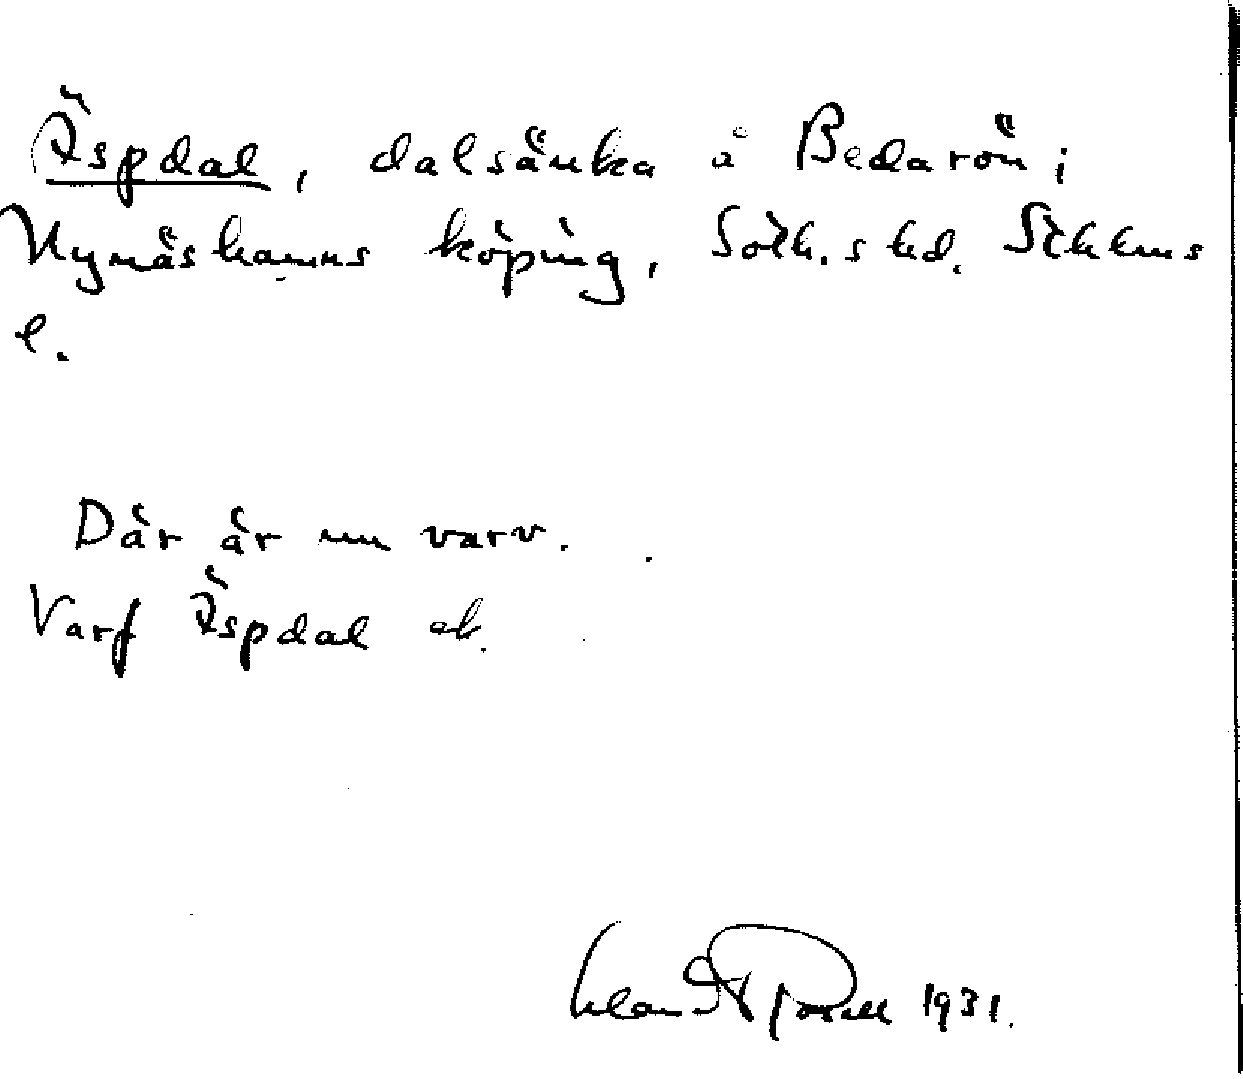 Äspdal, dalsänka å Bedarön i
Nynäshamns köping, Soth.s hd. Sthlms
l.
Där är nu varv.
Varf Äspdal ab.
1931.